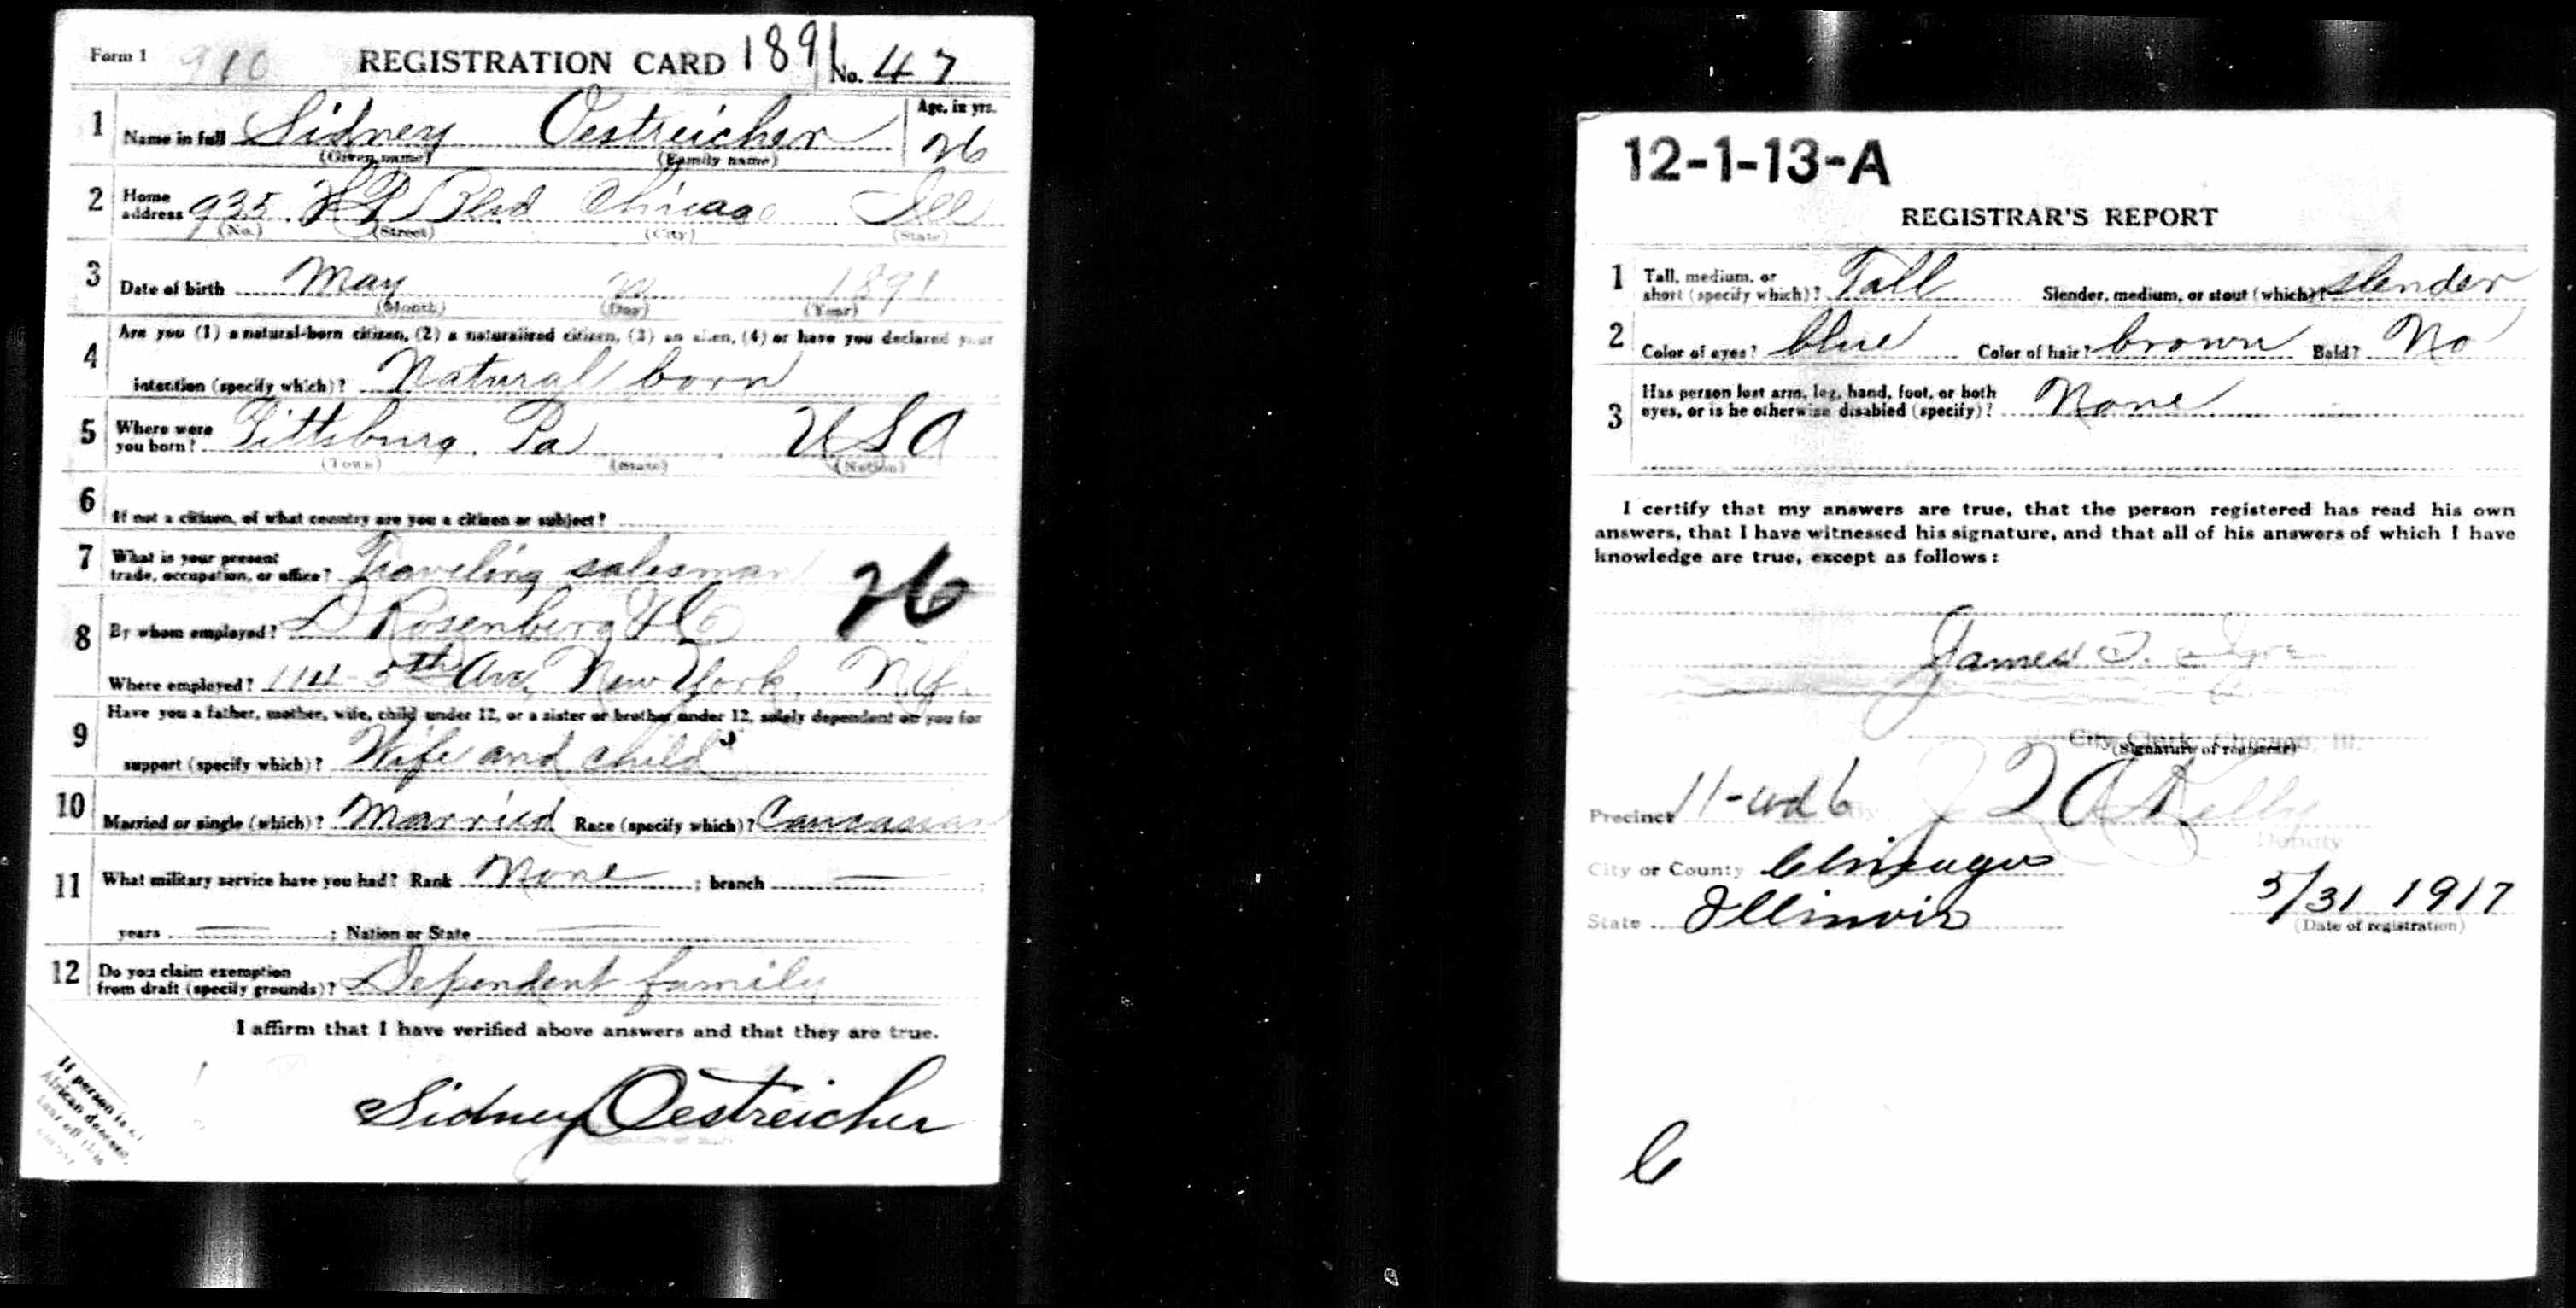 Form 1 910 REGISTRATION CARD 1891 No. 47
1 Name in full Sidney Oestreicher Age, in yrs. 26
(Given name) (Family name)
2 Home address 935 Chicago Ill
(No.) (Street) (City) (State)
3 Date of birth May 1891
(Month) (Day) (Year)
4 Are you (1) a natural-born citizen, (2) a naturalized citizen, (3) an alien, (4) or have you declared your
intention (specify which)? Natural born
5 Where were you born? Pittsburg, Pa USA
(Town) (State) (Nation)
6 If not a citizen, of what country are you a citizen or subject?
7 What is your present trade, occupation, or office? Traveling salesman
26
8 By whom employed? Rosenberg
Where employed? 5th Ave, New York, N.Y.
9 Have you a father, mother, wife, child under 12, or a sister or brother under 12, solely dependent on you for
support (specify which)? Wife and child
10 Married or single (which)? Married Race (specify which)? Caucasian
11 What military service have you had? Rank None ; branch —
years — ; Nation or State —
12 Do you claim exemption from draft (specify grounds)? Dependent family
I affirm that I have verified above answers and that they are true.
Sidney Oestreicher
If person is of
African descent,
12-1-13-A
REGISTRAR'S REPORT
1 Tall, medium, or short (specify which)? Tall Slender, medium, or stout (which)? slender
2 Color of eyes? blue Color of hair? brown Bald? No
3 Has person lost arm, leg, hand, foot, or both
eyes, or is he otherwise disabled (specify)? None
I certify that my answers are true, that the person registered has read his own
answers, that I have witnessed his signature, and that all of his answers of which I have
knowledge are true, except as follows:
James
City Clerk, Chicago, Ill.
(Signature of registrar)
Precinct 11-wd 6 By Kelly
Deputy
City or County Chicago
State Illinois 5/31 1917
(Date of registration)
6